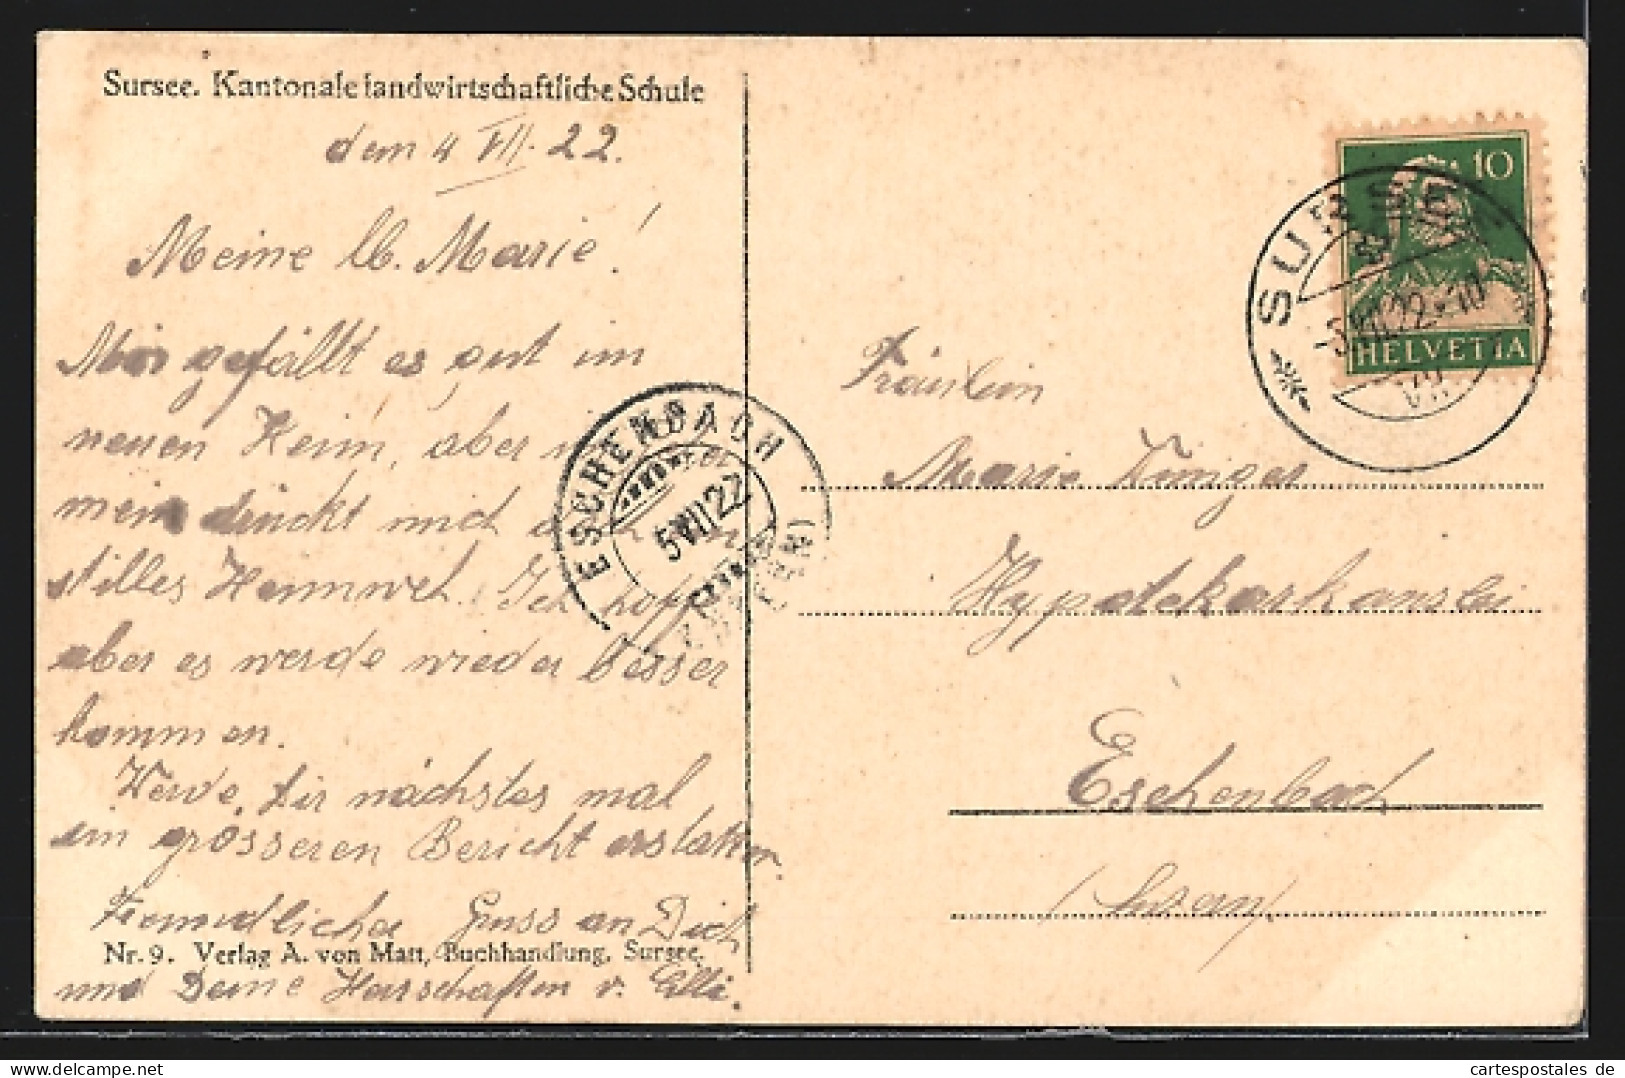 Sursee. Kantonale landwirtschaftliche Schule
den 4 VII. 22.
Meine lb. Marie!
Mir gefällt es gut im
neuen Heim, aber
mein drückt mich
stilles Heimweh. Ich hoffe
aber es werde wieder besser
kommen.
Werde dir nächstes mal
ein grösseren Bericht erstatten.
Freundlicher Gruss an Dich
Nr. 9. Verlag A. von Matt, Buchhandlung, Sursee.
und Deine Herrschaften v. Elli.
ESCHENBACH
5 VII 22
(LUZERN)
10
HELVETIA
SURSEE
-5.VII.22-10
VII
Fräulein
Marie
Hypotekarkanzlei
Eschenbach
(Luzern)
cartespostales de